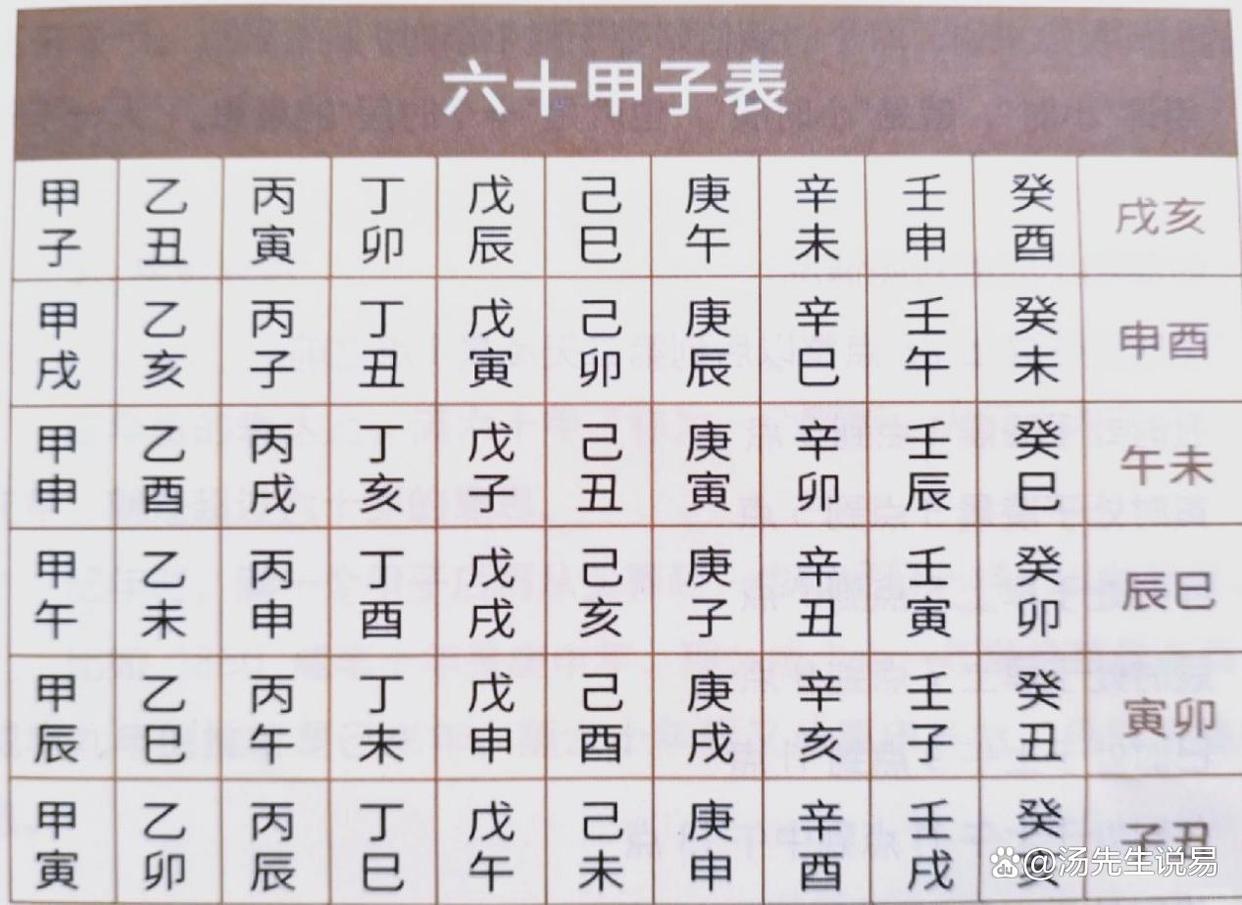 六十甲子表
甲子 乙丑 丙寅 丁卯 戊辰 己巳 庚午 辛未 壬申 癸酉 戌亥
甲戌 乙亥 丙子 丁丑 戊寅 己卯 庚辰 辛巳 壬午 癸未 申酉
甲申 乙酉 丙戌 丁亥 戊子 己丑 庚寅 辛卯 壬辰 癸巳 午未
甲午 乙未 丙申 丁酉 戊戌 己亥 庚子 辛丑 壬寅 癸卯 辰巳
甲辰 乙巳 丙午 丁未 戊申 己酉 庚戌 辛亥 壬子 癸丑 寅卯
甲寅 乙卯 丙辰 丁巳 戊午 己未 庚申 辛酉 壬戌 癸亥 子丑
@汤先生说易